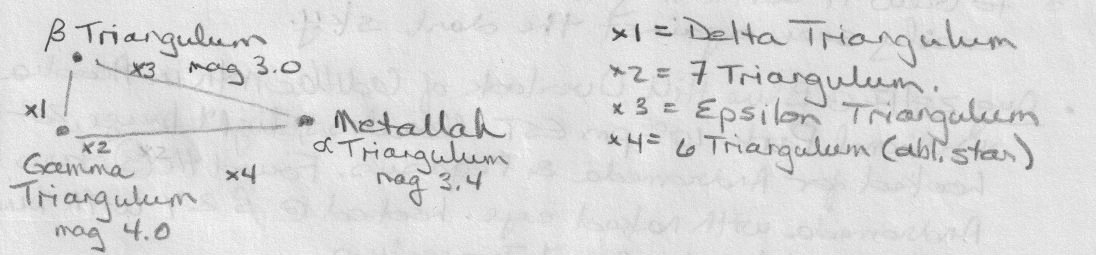 β Triangulum
x3 mag 3.0
x1
x2
Metallah
α Triangulum
mag 3.4
Gamma
Triangulum
mag 4.0
x4
x1 = Delta Triangulum
x2 = 7 Triangulum.
x3 = Epsilon Triangulum
x4= 6 Triangulum (dbl. star)